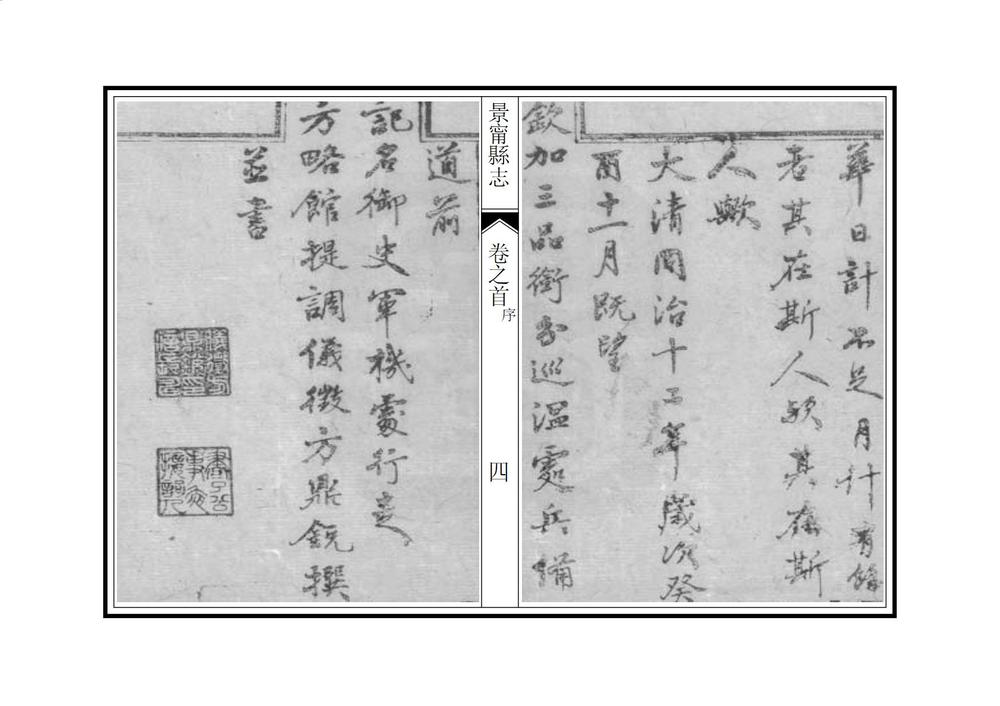 華日計不足月計有餘
者其在斯人歟其在斯
人歟
大清同治十二年歲次癸
酉十一月既望
欽加三品銜分巡温處兵備
景甯縣志
卷之首
序
四
道前
記名御史軍機處行走
方略館提調儀徵方鼎銳撰
並書